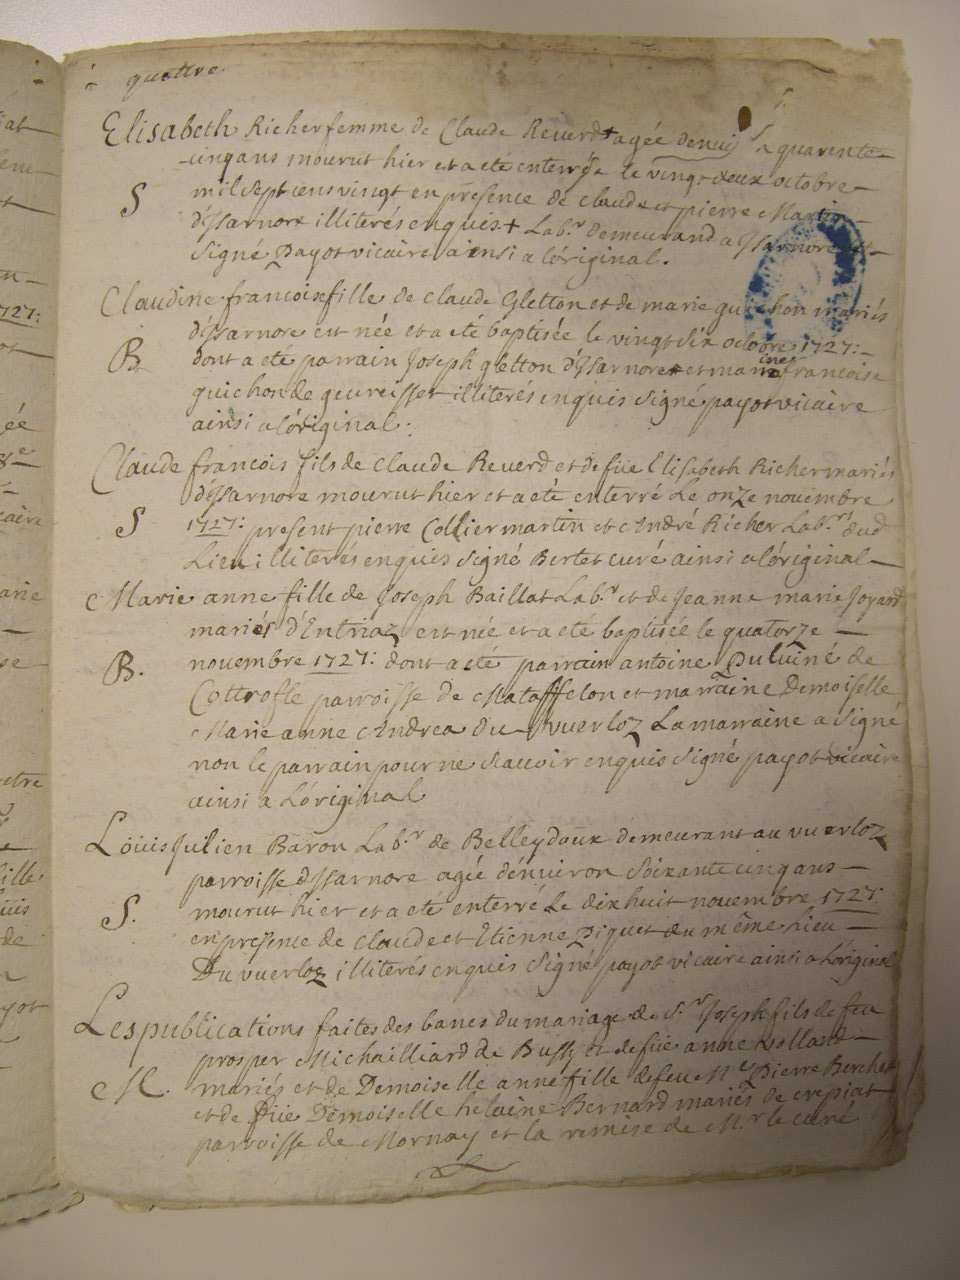 quattre.
Elisabeth Richer femme de Claude Reverd + agée denui quarente
cinq ans mourut hier et a eté enterrée le vingt deux octobre
S mil sept cens vingt en présence de claude et pierre Martin
d'issarnore illiterés enquis + Lab.r demeurand a issarnore
signé payot vicaire ainsi a lóriginal.
Claudine francoise fille de claude Gletton et de marie guichon mariés
d'issarnore est née et a eté baptisée le vingt six octobre 1727:
B. dont a eté parrain Joseph gletton d'issarnore et marraine francoise
guichon de geureisset illiterés enquis signé payot vicaire
ainsi a lóriginal.
Claude francois fils de claude Reverd et de füe Elisabeth Richer mariés
d'issarnore mourut hier et a eté enterré Le onze novembre
S 1727: present pierre Collier martin et André Richer Lab.r dud
Lieu illiterés enquis signé Bertet curé ainsi a lóriginal
Marie anne fille de Joseph Baillat Lab.r et de Jeanne marie Joyard
mariés d'Entriaz est née et a eté baptisée le quatorze
B. novembre 1727: dont a eté parrain antoine Dulviné de
Cottrofle parroisse de Mataffelon et marraine Demoiselle
Marie anne Andrea du vuerloz La marraine a signé
non le parrain pour ne scavoir enquis signé payot vicaire
ainsi a Lóriginal
Löuis Julien Baron Lab.r de Belleydoux demeurant au vuerloz
parroisse dissarnore agée dénuiron soixante cinq ans
S. mourut hier et a eté enterré Le dix huit novembre 1727:
en presence de claude et Etienne piquet du même Lieu
Du vuerloz illiterés enquis signé payot vicaire ainsi a Lóriginal
Les publications faites des bancs du mariage de S.r Joseph fils de feu
prosper Michailliard de Bussy et de füe anne
M. mariés et de Demoiselle anne fille de feu M.e Pierre Berchet
et de füe Demoiselle helaine Bernard mariés de crepiat
parroisse de Mornay et la remise de M.r le curé